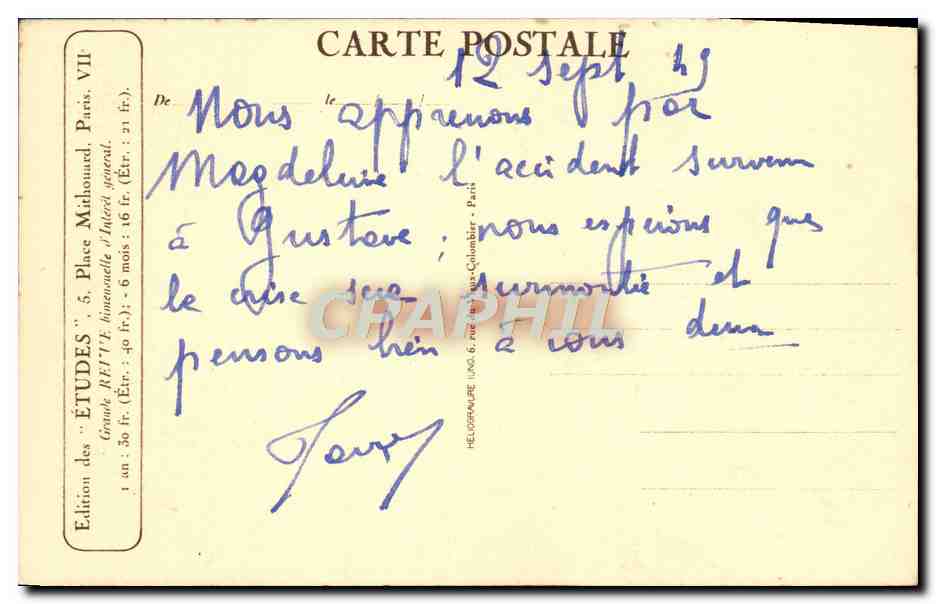 CARTE POSTALE
12 Sept 49
De le
Nous apprenons par
Magdeleine l'accident survenu
à Gustave ; nous espérons que
la crise sera surmontée et
pensons bien à vous deux
Edition des "ÉTUDES", 5, Place Mithouard, Paris, VII
Grande REVUE bimensuelle d'Intérêt général.
1 an : 30 fr. (Étr. : 40 fr.); - 6 mois : 16 fr. (Étr. : 21 fr.).
HÉLIOGRAVURE IUNG, 6, rue du Vieux-Colombier - Paris
CPAPHIL